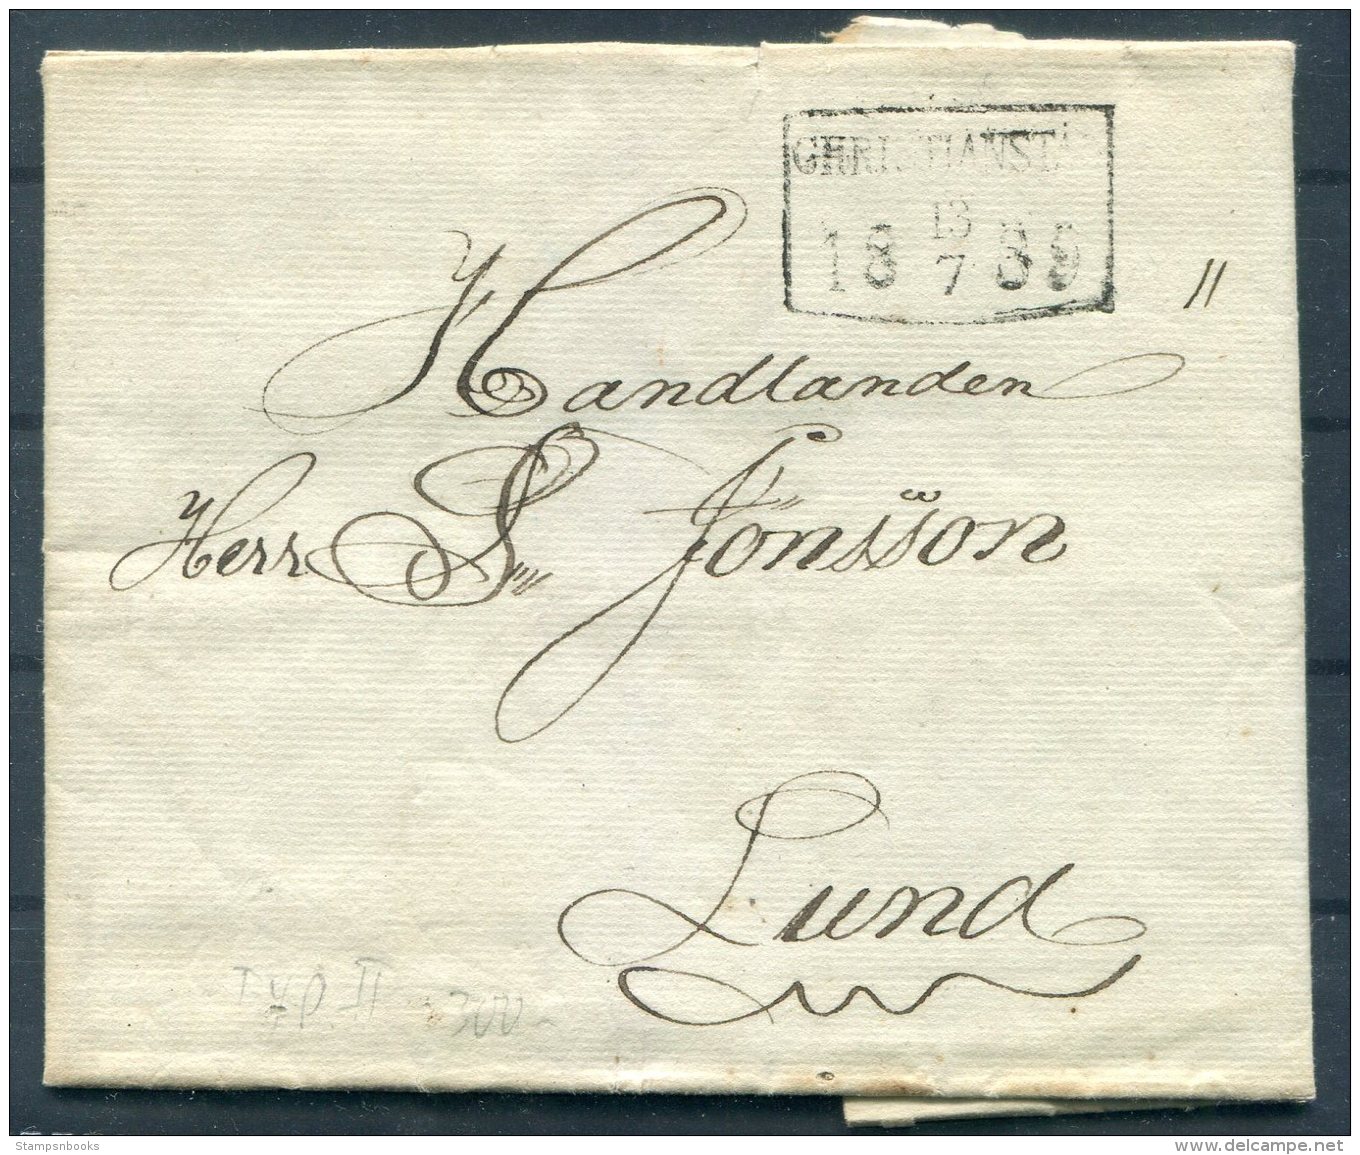 CHRISTIANST
13
18 7 39
"
Handlanden
Herr S. Jönsson
Lund
Typ II 300-
Stampsnbooks
www.delcampe.net